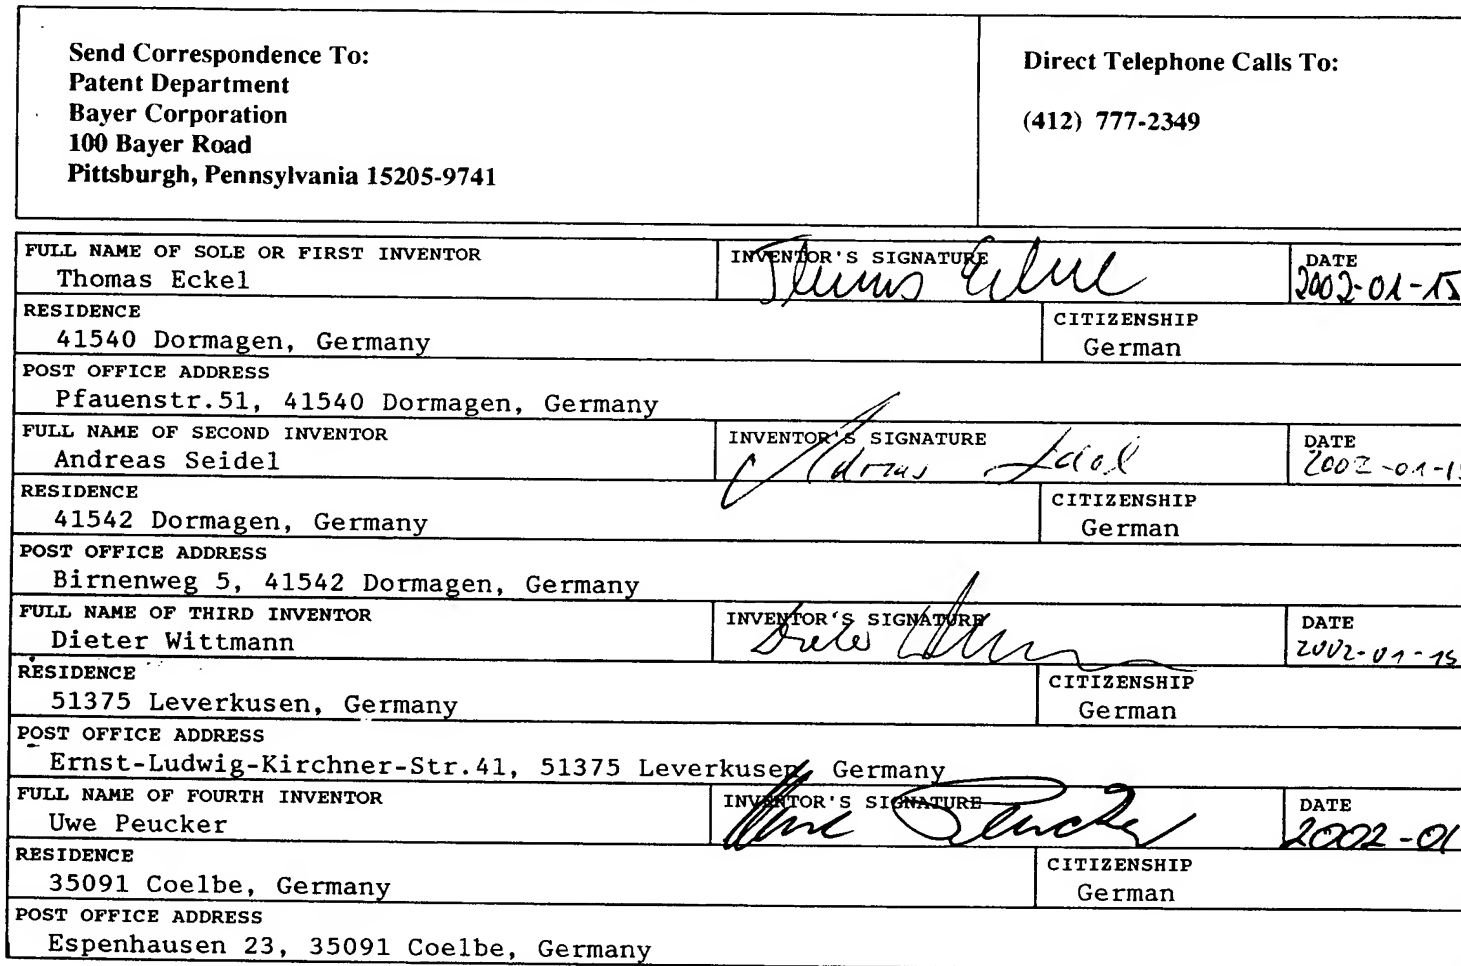 Send Correspondence To:
Patent Department
Bayer Corporation
100 Bayer Road
Pittsburgh, Pennsylvania 15205-9741
Direct Telephone Calls To:
(412) 777-2349
FULL NAME OF SOLE OR FIRST INVENTOR
Thomas Eckel
INVENTOR'S SIGNATURE
Thomas Eckel
DATE
2002-01-15
RESIDENCE
41540 Dormagen, Germany
CITIZENSHIP
German
POST OFFICE ADDRESS
Pfauenstr.51, 41540 Dormagen, Germany
FULL NAME OF SECOND INVENTOR
Andreas Seidel
INVENTOR'S SIGNATURE
Andreas Seidel
DATE
2002-01-15
RESIDENCE
41542 Dormagen, Germany
CITIZENSHIP
German
POST OFFICE ADDRESS
Birnenweg 5, 41542 Dormagen, Germany
FULL NAME OF THIRD INVENTOR
Dieter Wittmann
INVENTOR'S SIGNATURE
Dieter
DATE
2002-01-15
RESIDENCE
51375 Leverkusen, Germany
CITIZENSHIP
German
POST OFFICE ADDRESS
Ernst-Ludwig-Kirchner-Str.41, 51375 Leverkusen, Germany
FULL NAME OF FOURTH INVENTOR
Uwe Peucker
INVENTOR'S SIGNATURE
Uwe Peucker
DATE
2002-01
RESIDENCE
35091 Coelbe, Germany
CITIZENSHIP
German
POST OFFICE ADDRESS
Espenhausen 23, 35091 Coelbe, Germany